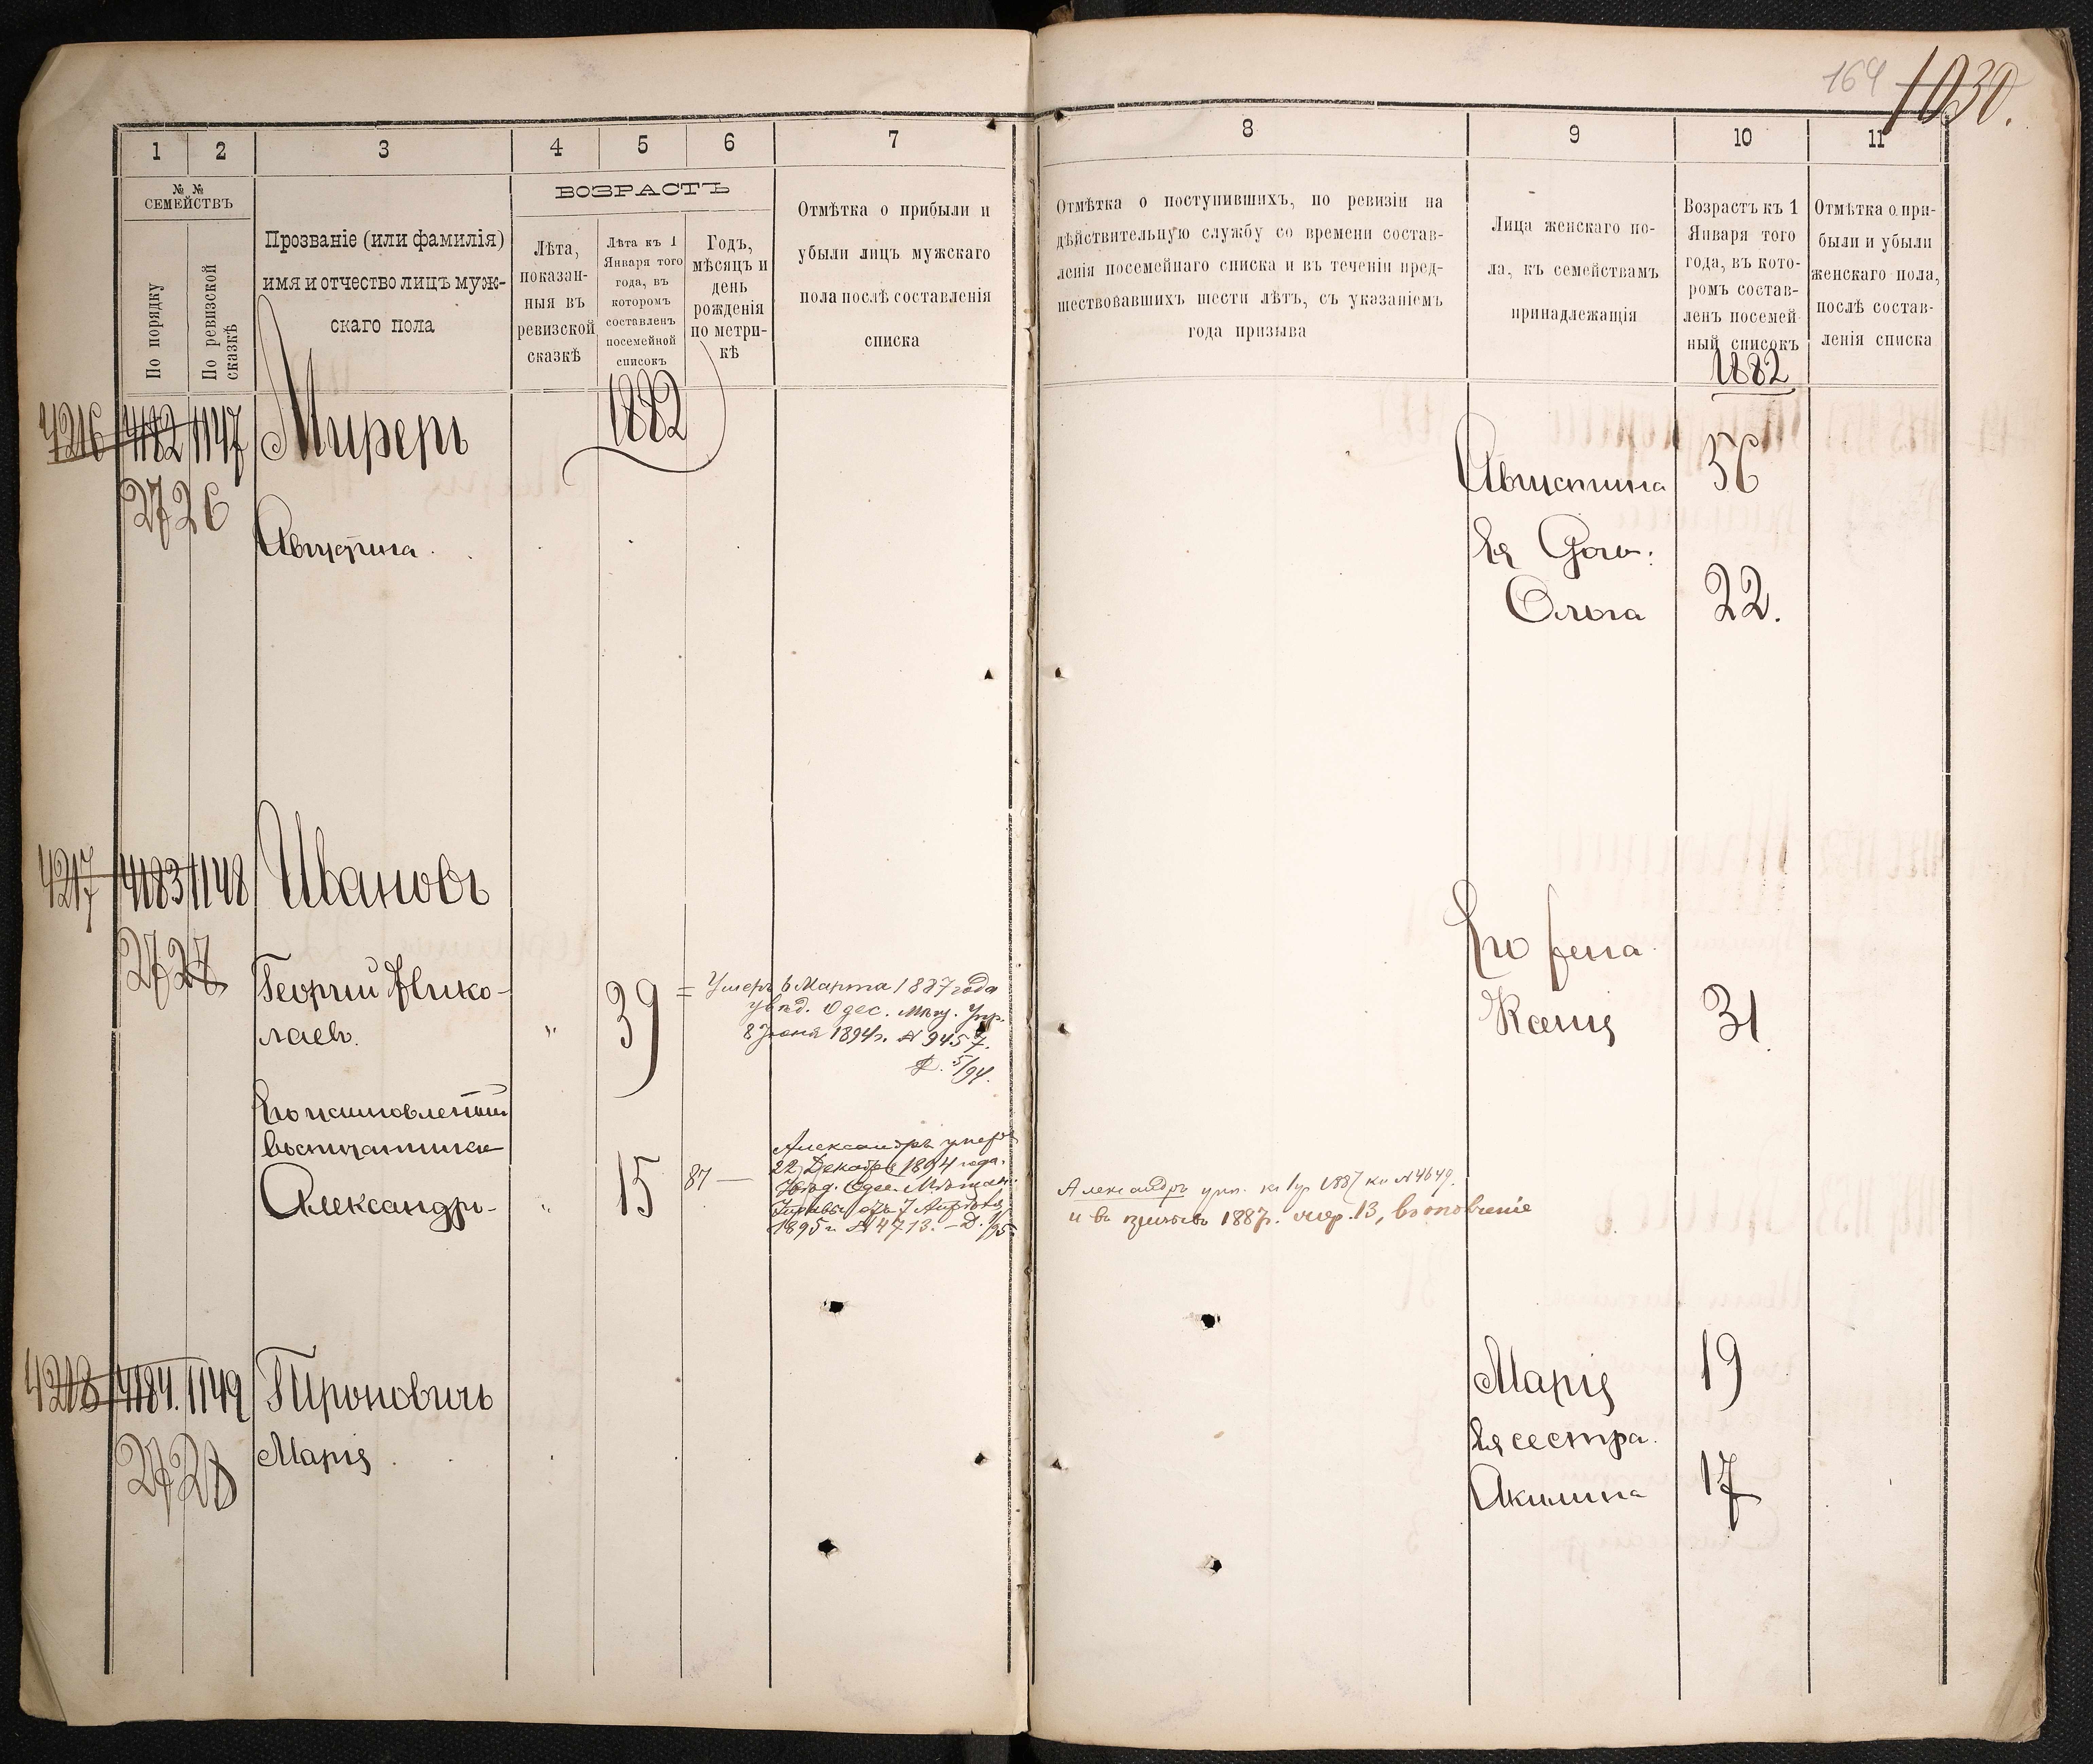 164 1030.
1 2 3 4 5 6 7
№ № СЕМЕЙСТВЪ
По порядку
По ревизской сказкѣ
Прозваніе (или фамилія)
имя и отчество лицъ муж-
скаго пола
ВОЗРАСТЪ
Лѣта,
показан-
ныя въ
ревизской
сказкѣ
Лѣта къ 1
Января того
года, въ
которомъ
составленъ
посемейной
списокъ
1882
Годъ,
мѣсяцъ и
день
рожденія
по метри-
кѣ
Отмѣтка о прибыли и
убыли лицъ мужскаго
пола послѣ составленія
списка
8 9 10 11
Отмѣтка о поступившихъ, по ревизіи на
дѣйствительную службу со времени состав-
ленія посемейнаго списка и въ теченіи пред-
шествовавшихъ шести лѣтъ, съ указаніемъ
года призыва
Лица женскаго по-
ла, къ семействамъ
принадлежащія
Возрастъ къ 1
Января того
года, въ кото-
ромъ состав-
ленъ посемей-
ный списокъ
1882
Отмѣтка о при-
были и убыли
женскаго пола,
послѣ состав-
ленія списка
4216 4182 1147 Миреръ
2726
Августина.
Августина 56
Ея Дочь:
Ольга 22.
4217 4183 1148 Ивановъ
2727
Георгий Нико-
лаевъ. " 39
Умеръ 6 Марта 1887 года
увѣд. Одес. Мѣщ. Упр.
8 Іюня 1894 г. № 9457.
5/94.
Его жена
Ксенія 31
Его усыновленный
воспитанникъ
Александръ " 15 87 —
Александръ умеръ
22 Декабря 1894 года.
Увѣд. Одес. Мѣщан.
Управы отъ 7 Апрѣля
1895 г. № 4713. — Д. /95
Александръ прип. къ 1 уч 1887 № 4649.
и въ призывъ 1887 г. жер. 13, въ ополченіе
4218 4184. 1149 Пироновичъ
2728 Марія
Марія 19
Ея сестра
Акилина 17